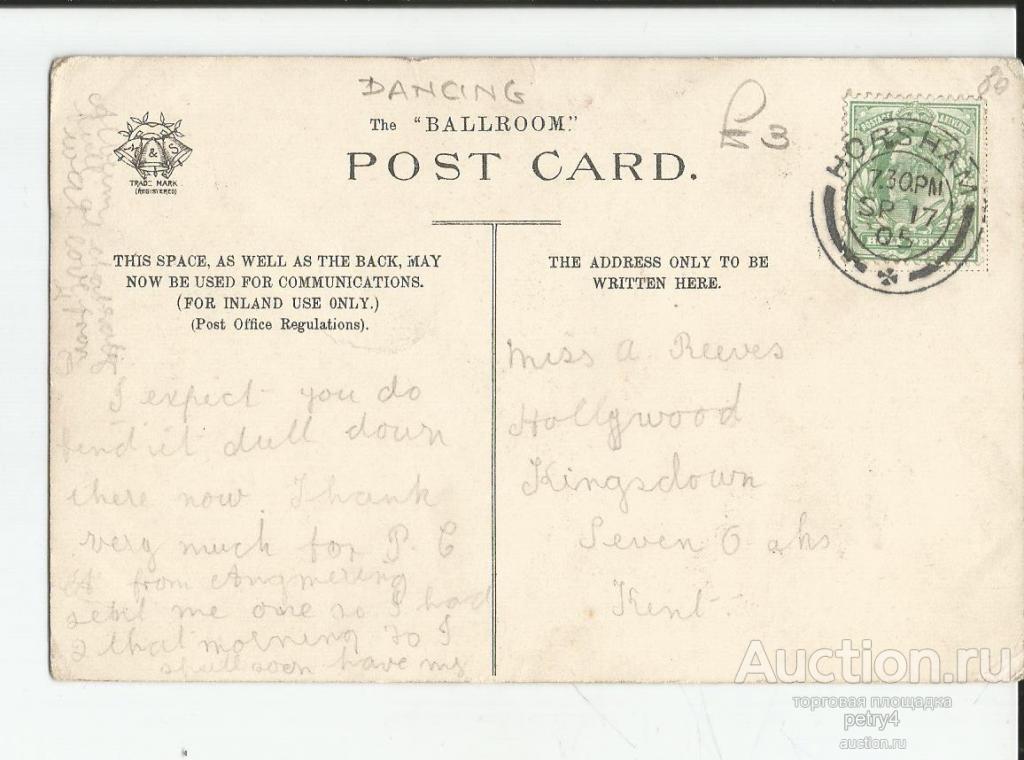 DANCING
The "BALLROOM"
POST CARD.
& S
TRADE MARK
(REGISTERED)
E3
HORSHAM
7.30PM
SP 17
05
THIS SPACE, AS WELL AS THE BACK, MAY
NOW BE USED FOR COMMUNICATIONS.
(FOR INLAND USE ONLY.)
(Post Office Regulations).
THE ADDRESS ONLY TO BE
WRITTEN HERE.
I expect you do
find it dull down
there now. Thank
very much for P. C
from Angmering
sent me one so I had
2 that morning so I
shall soon have my
Album
full
with love from
Miss A Reeves
Hollywood
Kingsdown
Seven Oaks
Kent
Auction.ru
торговая площадка
petry4
auction.ru